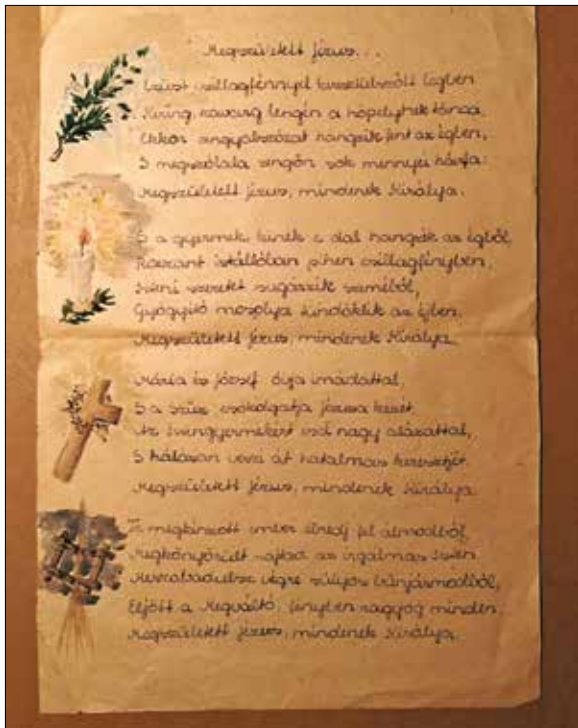 Megszületett Jézus...
Ezüst csillagfénnyel keresztülszőtt légben
Kering, kavarog lengén a hópelyhek tánca,
Ekkor angyalszózat hangzik fent az égben,
S megszólala zengőn sok mennyei hárfa:
Megszületett Jézus, mindenek Királya.
S a gyermek, kinek e dal hangzik az égből,
istállóban pihen csillagfényben,
Isteni szeretet sugárzik szeméből,
Gyógyító mosolya tündöklik az éjben.
Megszületett Jézus, mindenek Királya.
Mária és József ója imádattal,
S a Szűz csókolgatja Jézusa kezét.
Az Istengyermekért esd nagy alázattal,
S hálásan veszi át hatalmas keresztjét.
Megszületett Jézus, mindenek Királya.
Te megkínzott ember ébredj fel álmodból,
Megkönyörült rajtad az irgalmas Isten
végre súlyos bűnjármodból,
Eljött a Megváltó, fényben ragyog minden
Megszületett Jézus, mindenek Királya.